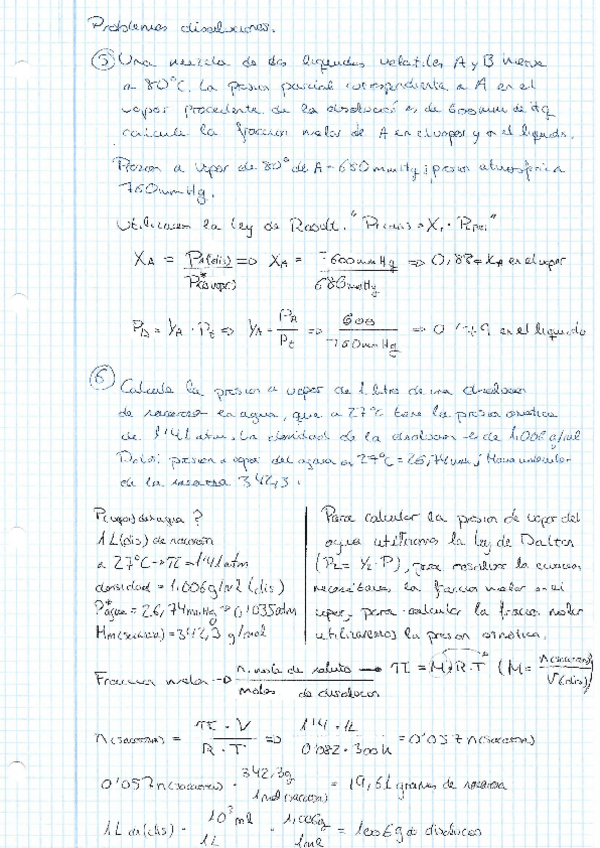 Problemas disoluciones.
⑤ Una mezcla de dos líquidos volátiles A y B hierve
a 80°C. La presión parcial correspondiente a A en el
vapor procedente de la disolución es de 600mm de Hg
calcule la fracción molar de A en el vapor y en el líquido.
Presión a vapor de 80° de A = 680mmHg; presión atmosférica
760mmHg.
Utilizamos la ley de Raoult.
X_A = ⇒ X_A = 600mmHg / 680mmHg ⇒ 0,88 = X_A en el vapor
P_A = Y_A · P_t ⇒ Y_A = P_A / P_t ⇒ 600 / 760mmHg ⇒ en el líquido
⑥ Calcula la presión a vapor de 1 litro de una disolución
de sacarosa en agua, que a 27°C tiene la presión osmótica
de 1'41 atm. La densidad de la disolución es de 1,006 g/ml
Datos: presión a vapor del agua a 27°C = 26,74 mm; Masa molecular
de la sacarosa 342,3.
P(vapor) del agua?
1L(dis) de sacarosa
a 27°C → π = 1'41atm
densidad = 1,006g/ml (dis)
P*agua = 26,74mmHg → 0'035atm
Mm(sacarosa) = 342,3 g/mol
Para calcular la presión de vapor del
agua utilizamos la ley de Dalton
para resolver la ecuación
necesitamos la fracción molar en el
vapor, para calcular la fracción molar
utilizaremos la presión osmótica.
Fracción molar → n. moles de soluto / moles de disolución → π = M·R·T (M = n(sacarosa) / V(dis))
n(sacarosa) = π · V / R · T ⇒ 1'4 · 1L / 0'082 · 300K = 0'057 n(sacarosa)
0'057 n(sacarosa) · 342,3g / 1mol(sacarosa) = 19,51 gramos de sacarosa
1L de(dis) · 10³ml / 1L · 1,006g / 1ml = 1006g de disolución